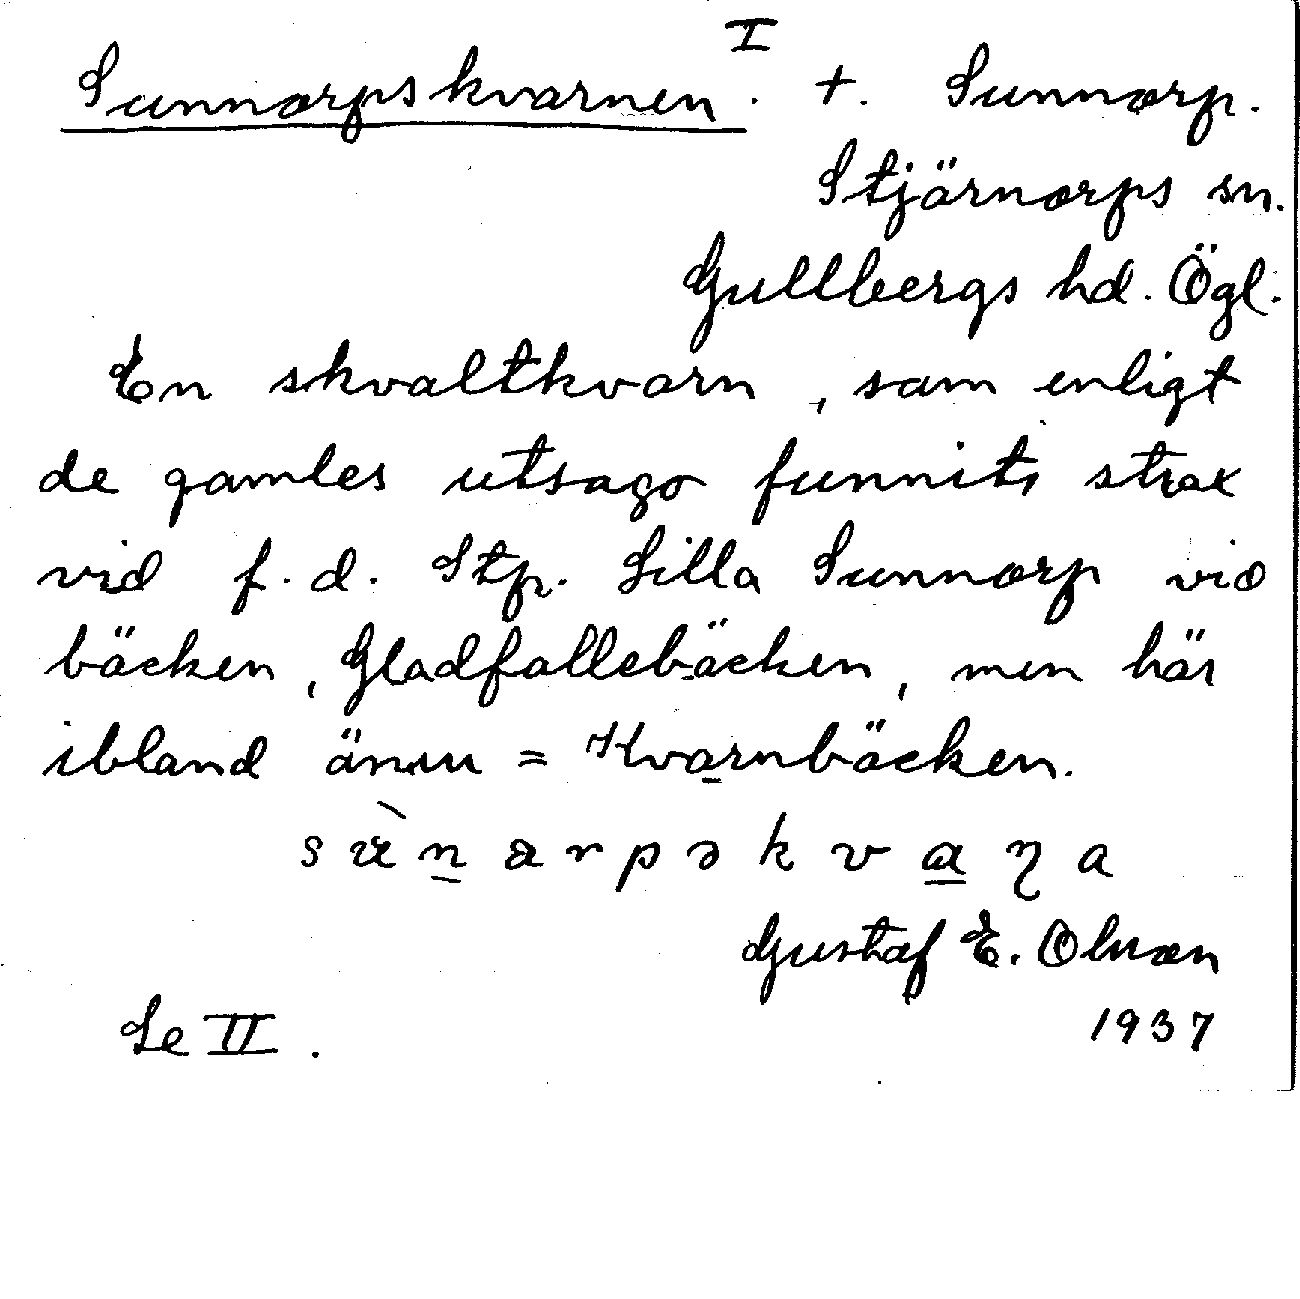 Sunnorpskvarnen I. +. Sunnorp.
Stjärnorps sn.
Gullbergs hd. Ögl.
En skvaltkvarn, som enligt
de gamles utsago funnits strax
vid f.d. Stp. Lilla Sunnorp vid
bäcken, Gladfallebäcken, men här
ibland ännu = Kvarnbäcken.
Gustaf E. Olsson
Se II. 1937